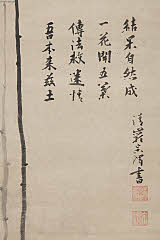 吾本来茲土
傳法救迷情
一花開五葉
結果自然成
清巖宗渭書